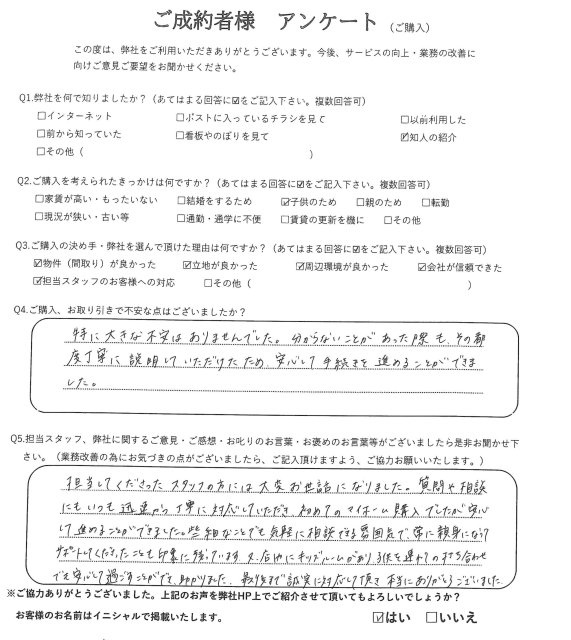 ご成約者様 アンケート（ご購入）
この度は、弊社をご利用いただきありがとうございます。今後、サービスの向上・業務の改善に
向けご意見ご要望をお聞かせください。
Q1.弊社を何で知りましたか？（あてはまる回答に☑をご記入下さい。複数回答可）
☐インターネット ☐ポストに入っているチラシを見て ☐以前利用した
☐前から知っていた ☐看板やのぼりを見て ☑知人の紹介
☐その他（ ）
Q2.ご購入を考えられたきっかけは何ですか？（あてはまる回答に☑をご記入下さい。複数回答可）
☐家賃が高い・もったいない ☐結婚をするため ☑子供のため ☐親のため ☐転勤
☐現況が狭い・古い等 ☐通勤・通学に不便 ☐賃貸の更新を機に ☐その他
Q3.ご購入の決め手・弊社を選んで頂けた理由は何ですか？（あてはまる回答に☑をご記入下さい。複数回答可）
☑物件（間取り）が良かった ☑立地が良かった ☑周辺環境が良かった ☑会社が信頼できた
☑担当スタッフのお客様への対応 ☐その他（ ）
Q4.ご購入、お取り引きで不安な点はございましたか？
特に大きな不安はありませんでした。分からないことがあった際も、その都
度丁寧に説明していただけたため、安心して手続きを進めることができま
した。
Q5.担当スタッフ、弊社に関するご意見・ご感想・お叱りのお言葉・お褒めのお言葉等がございましたら是非お聞かせ下
さい。（業務改善の為にお気づきの点がございましたら、ご記入頂けますよう、ご協力お願いいたします。）
担当してくださったスタッフの方には大変お世話になりました。質問や相談
にもいつも迅速かつ丁寧に対応していただき、初めてのマイホーム購入でしたが安心
して進めることができました。些細なことでも気軽に相談できる雰囲気で、常に親身になって
サポートしてくださったことも印象に残っています。又、店内にキッズルームがあり、子供を連れての打ち合わせ
でも安心して過ごすことができ、助かりました。最後まで誠実に対応して頂き、本当にありがとうございました。
※ご協力ありがとうございました。上記のお声を弊社HP上でご紹介させて頂いてもよろしいでしょうか？
お客様のお名前はイニシャルで掲載いたします。 ☑はい ☐いいえ